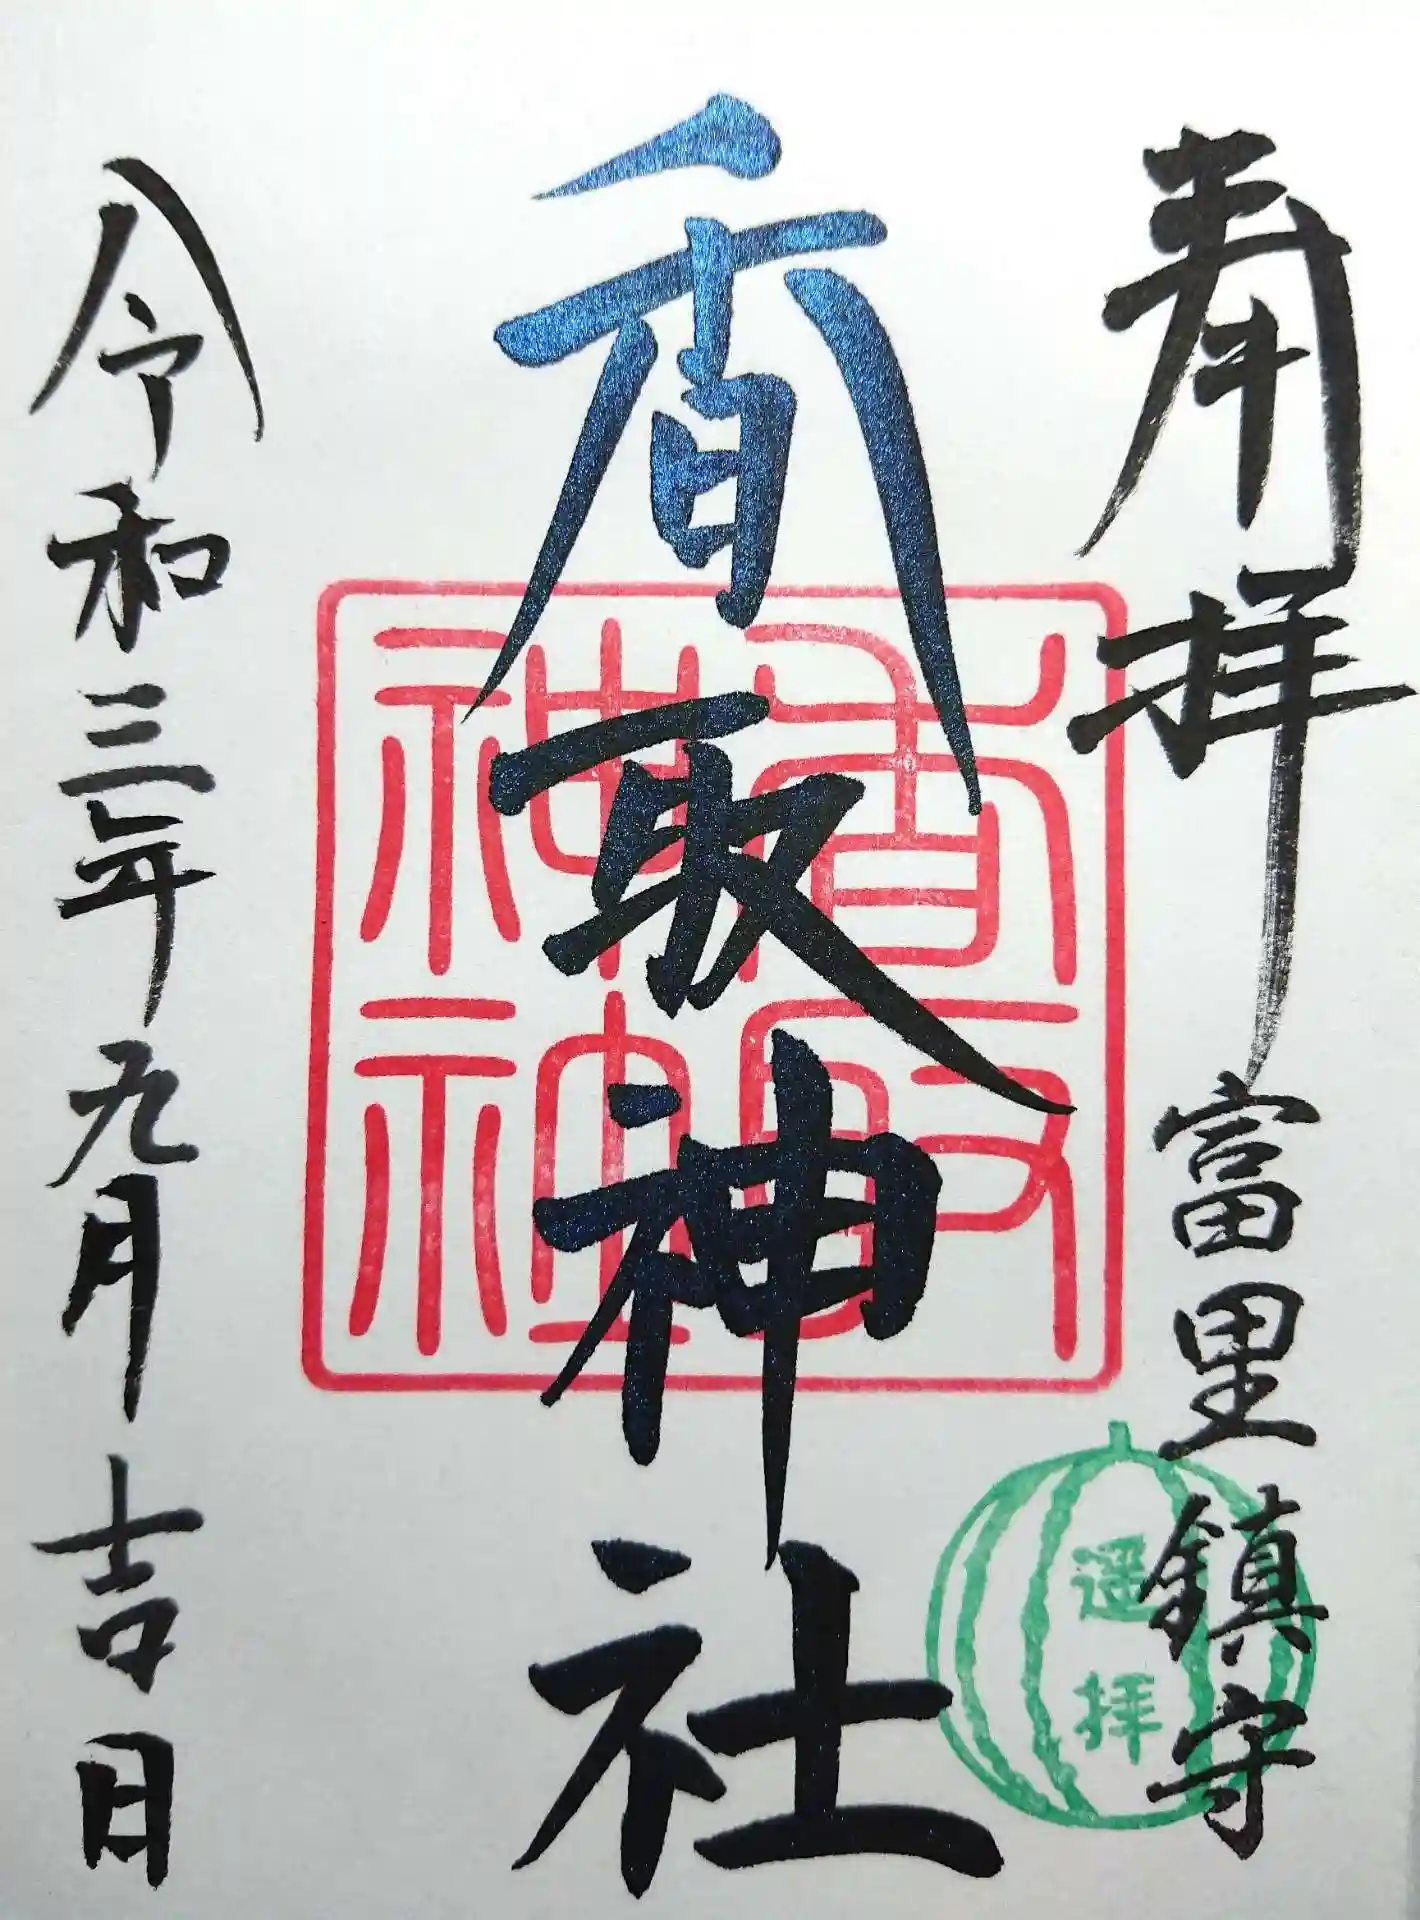 奉拝
富里鎮守
遥拝
香取神社
香取神社
令和三年九月吉日